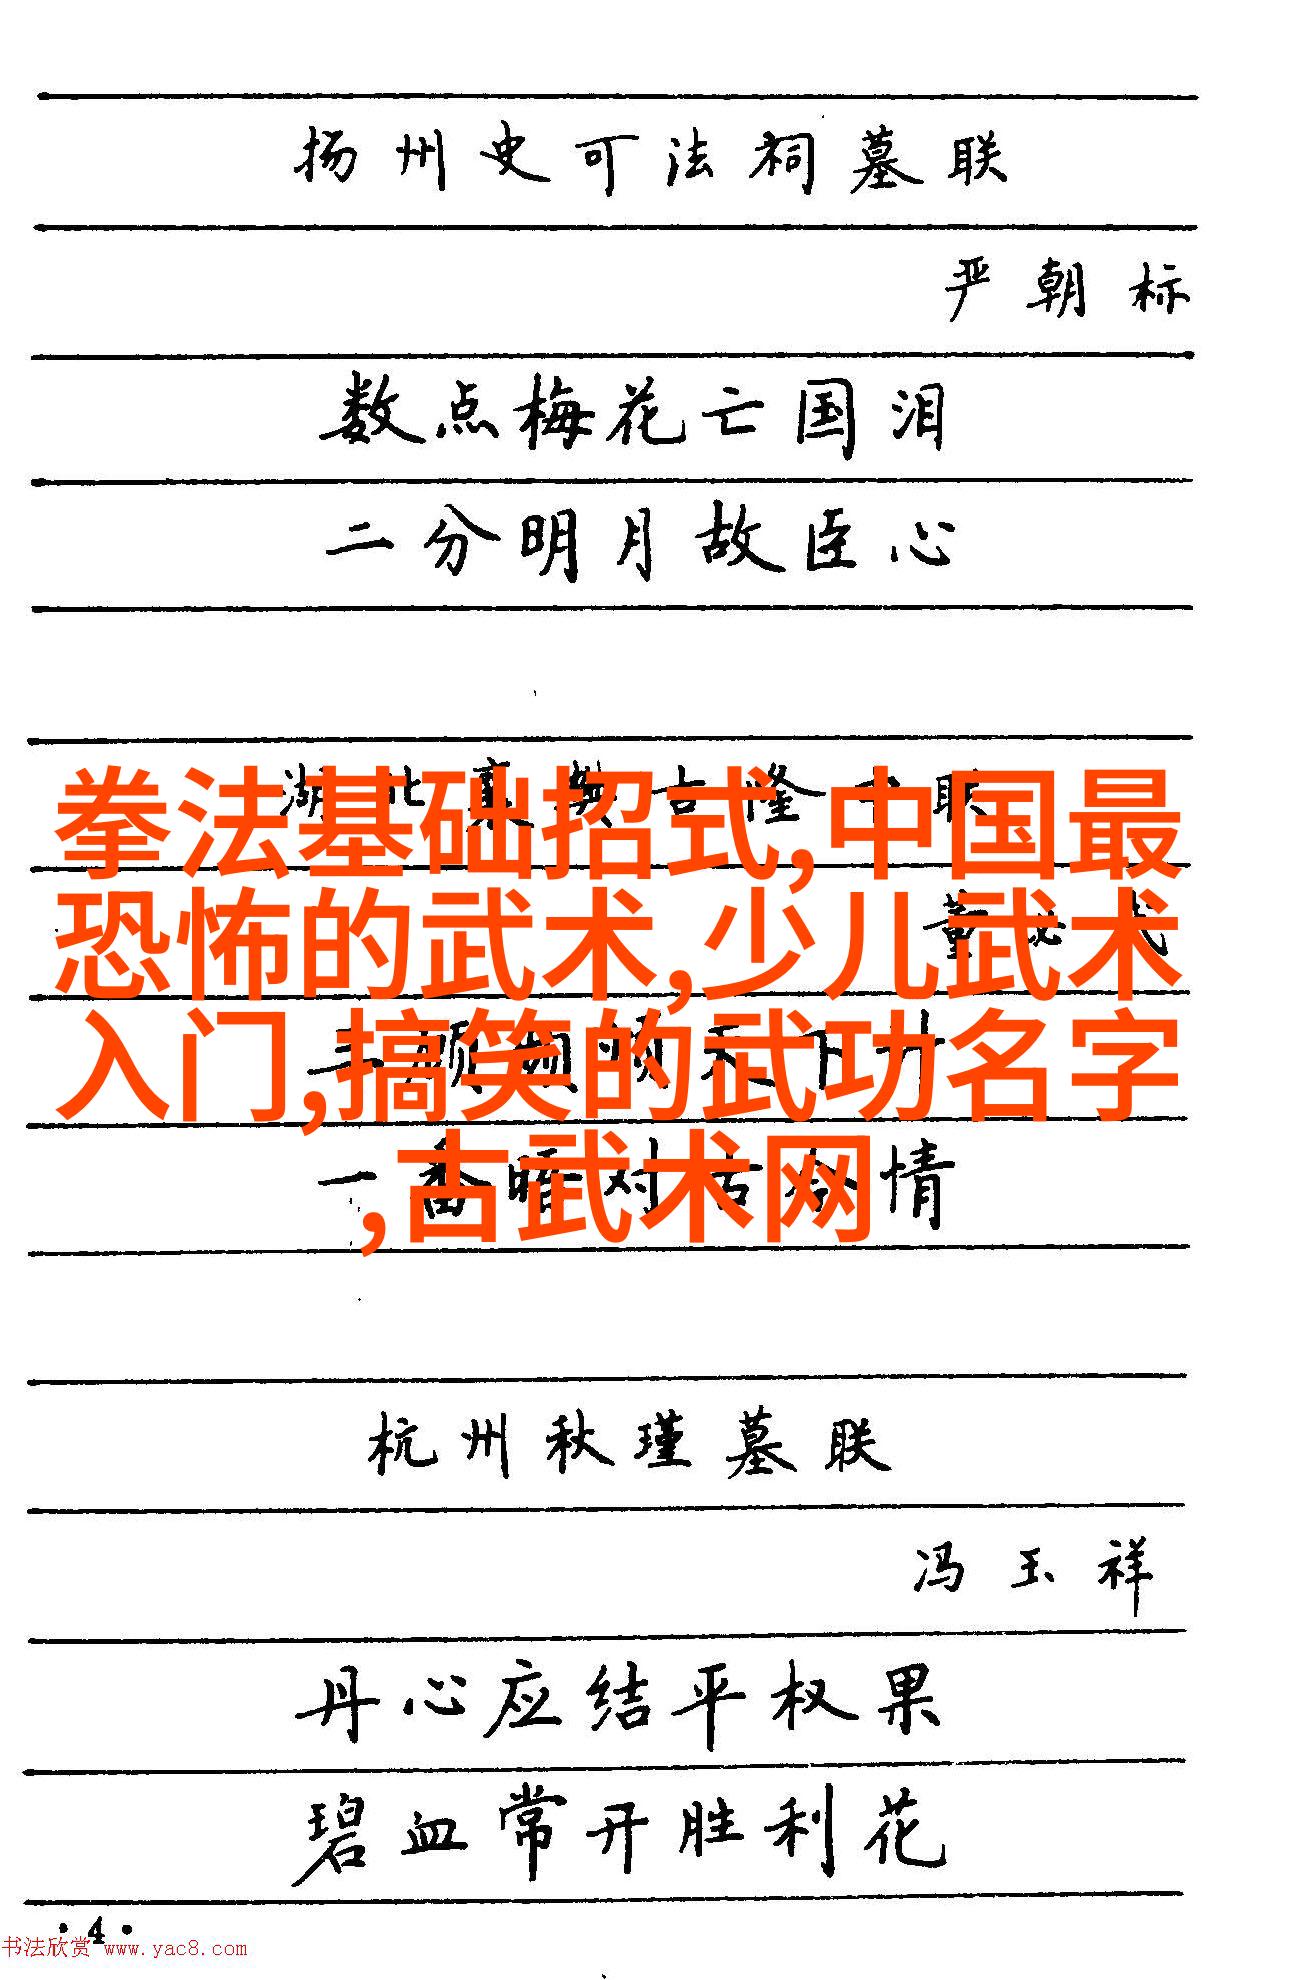 扬州史可法祠墓联
严朝标
数点梅花亡国泪
二分明月故臣心
拳法基础招式,中国最
恐怖的武术,少儿武术
入门,搞笑的武功名字
,古武术网
杭州秋瑾墓联
冯玉祥
丹心应结平权果
碧血常开胜利花
·4·
书法欣赏 www.yac8.com